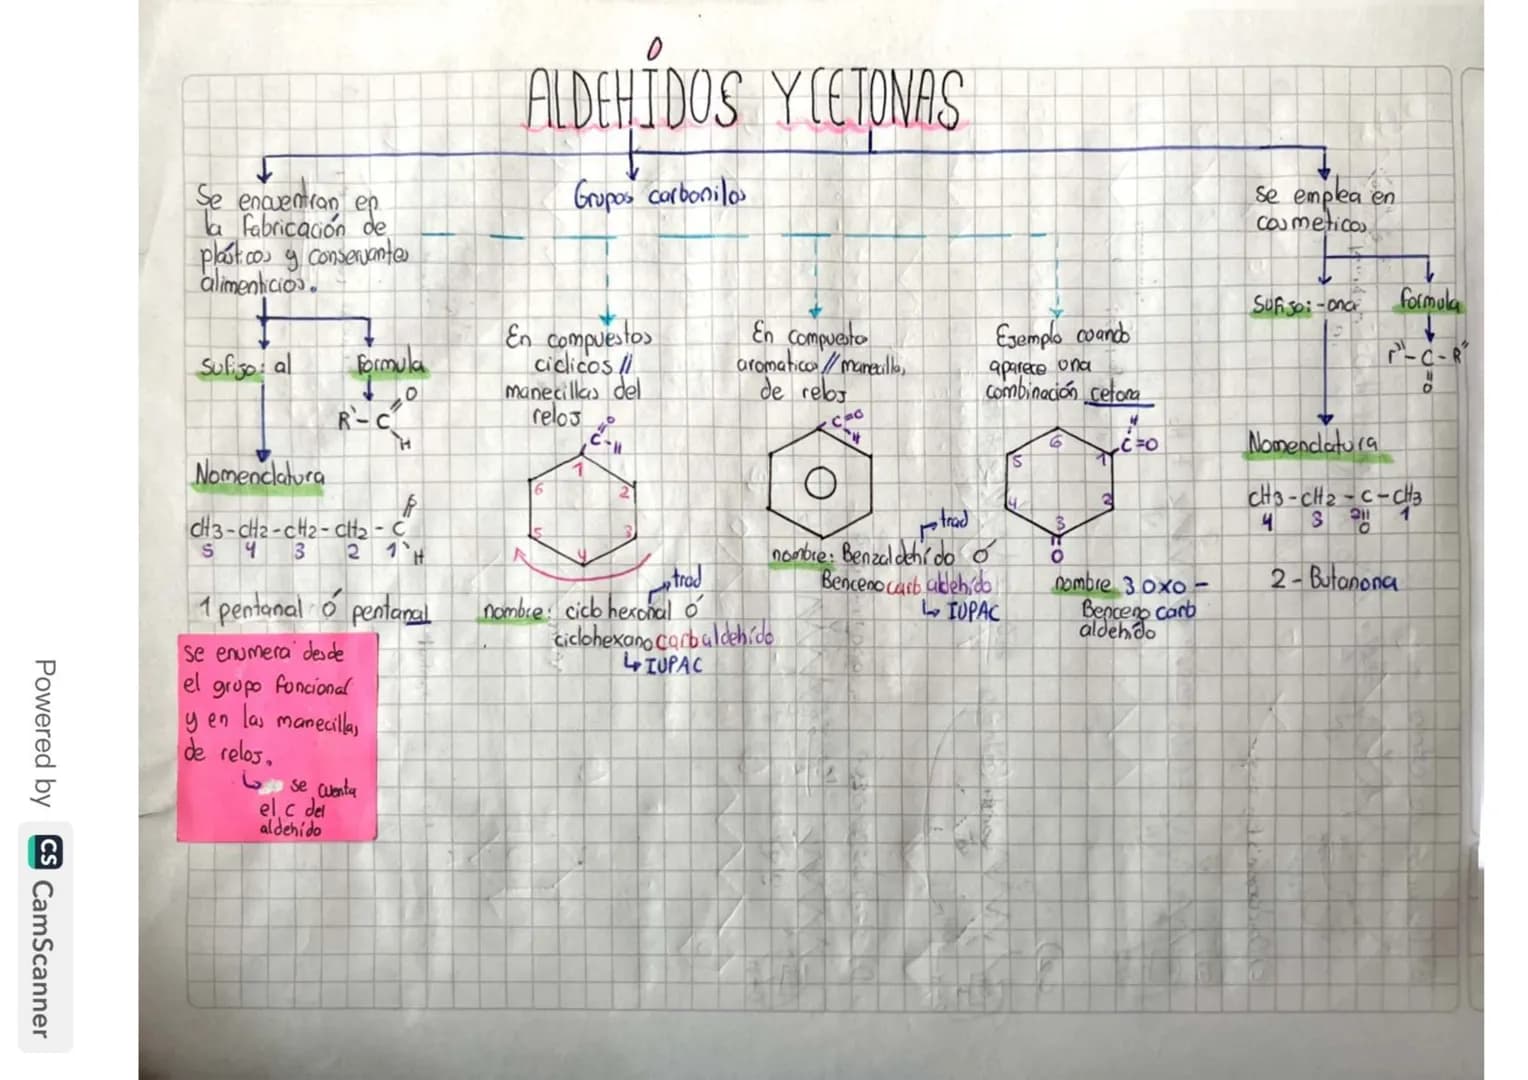 ALDEHÍDOS Y CETONAS
Se encuentran en
la fabricación de
plásticos y conservantes
alimenticios.
Sufijo: al
Formula
R'-C
O
H
Nomenclatura
CH3-CH2-CH2-CH2-C
H
5 4 3 2 1
1 pentanal ó pentanal
se enumera desde
el grupo funcional
y en las manecillas
de reloj.
↳ se cuenta
el c del
aldehído
Grupos carbonilos
En compuestos
ciclicos //
manecillas del
reloj
C
O
H
1
2
3
4
5
6
trad
nombre: ciclo hexonal ó
ciclohexano carbaldehído
↳ IUPAC
En compuesto
aromatico // manecillas
de reloj
C=O
H
trad
nombre: Benzaldehído ó
Benceno carb aldehído
↳ IUPAC
Ejemplo cuando
aparece una
combinación cetona
H
C=O
6
5
1
4
2
3
O
nombre 3 oxo -
Benceno carb
aldehído
se emplea en
cosmeticos
Sufijo: -ona
formula
r"-C-R"
O
Nomenclatura
CH3-CH2-C-CH3
4 3 2 1
O
2-Butanona
Powered by CS CamScanner